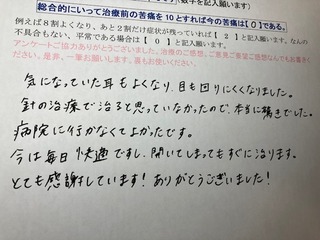 総合的にいって治療前の苦痛を10とすれば今の苦痛は【0】である。
例えば8割よくなり、あと2割だけ症状が残っていれば【2】と記入願います。なんの
不具合もない、平常である場合は【0】と記入願います。
アンケートご協力ありがとうございました。治療のご感想、ご意見ご要望ご感想なんでもお書きく
ださい。是非、一筆お願いします。裏もお使いください。
気になっていた耳もよくなり、目も回りにくくなりました。
針の治療で治ると思っていなかったので、本当に驚きでした。
病院に行かなくてよかったです。
今は毎日快適ですし、開いてしまってもすぐに治ります。
とても感謝しています!ありがとうございました!